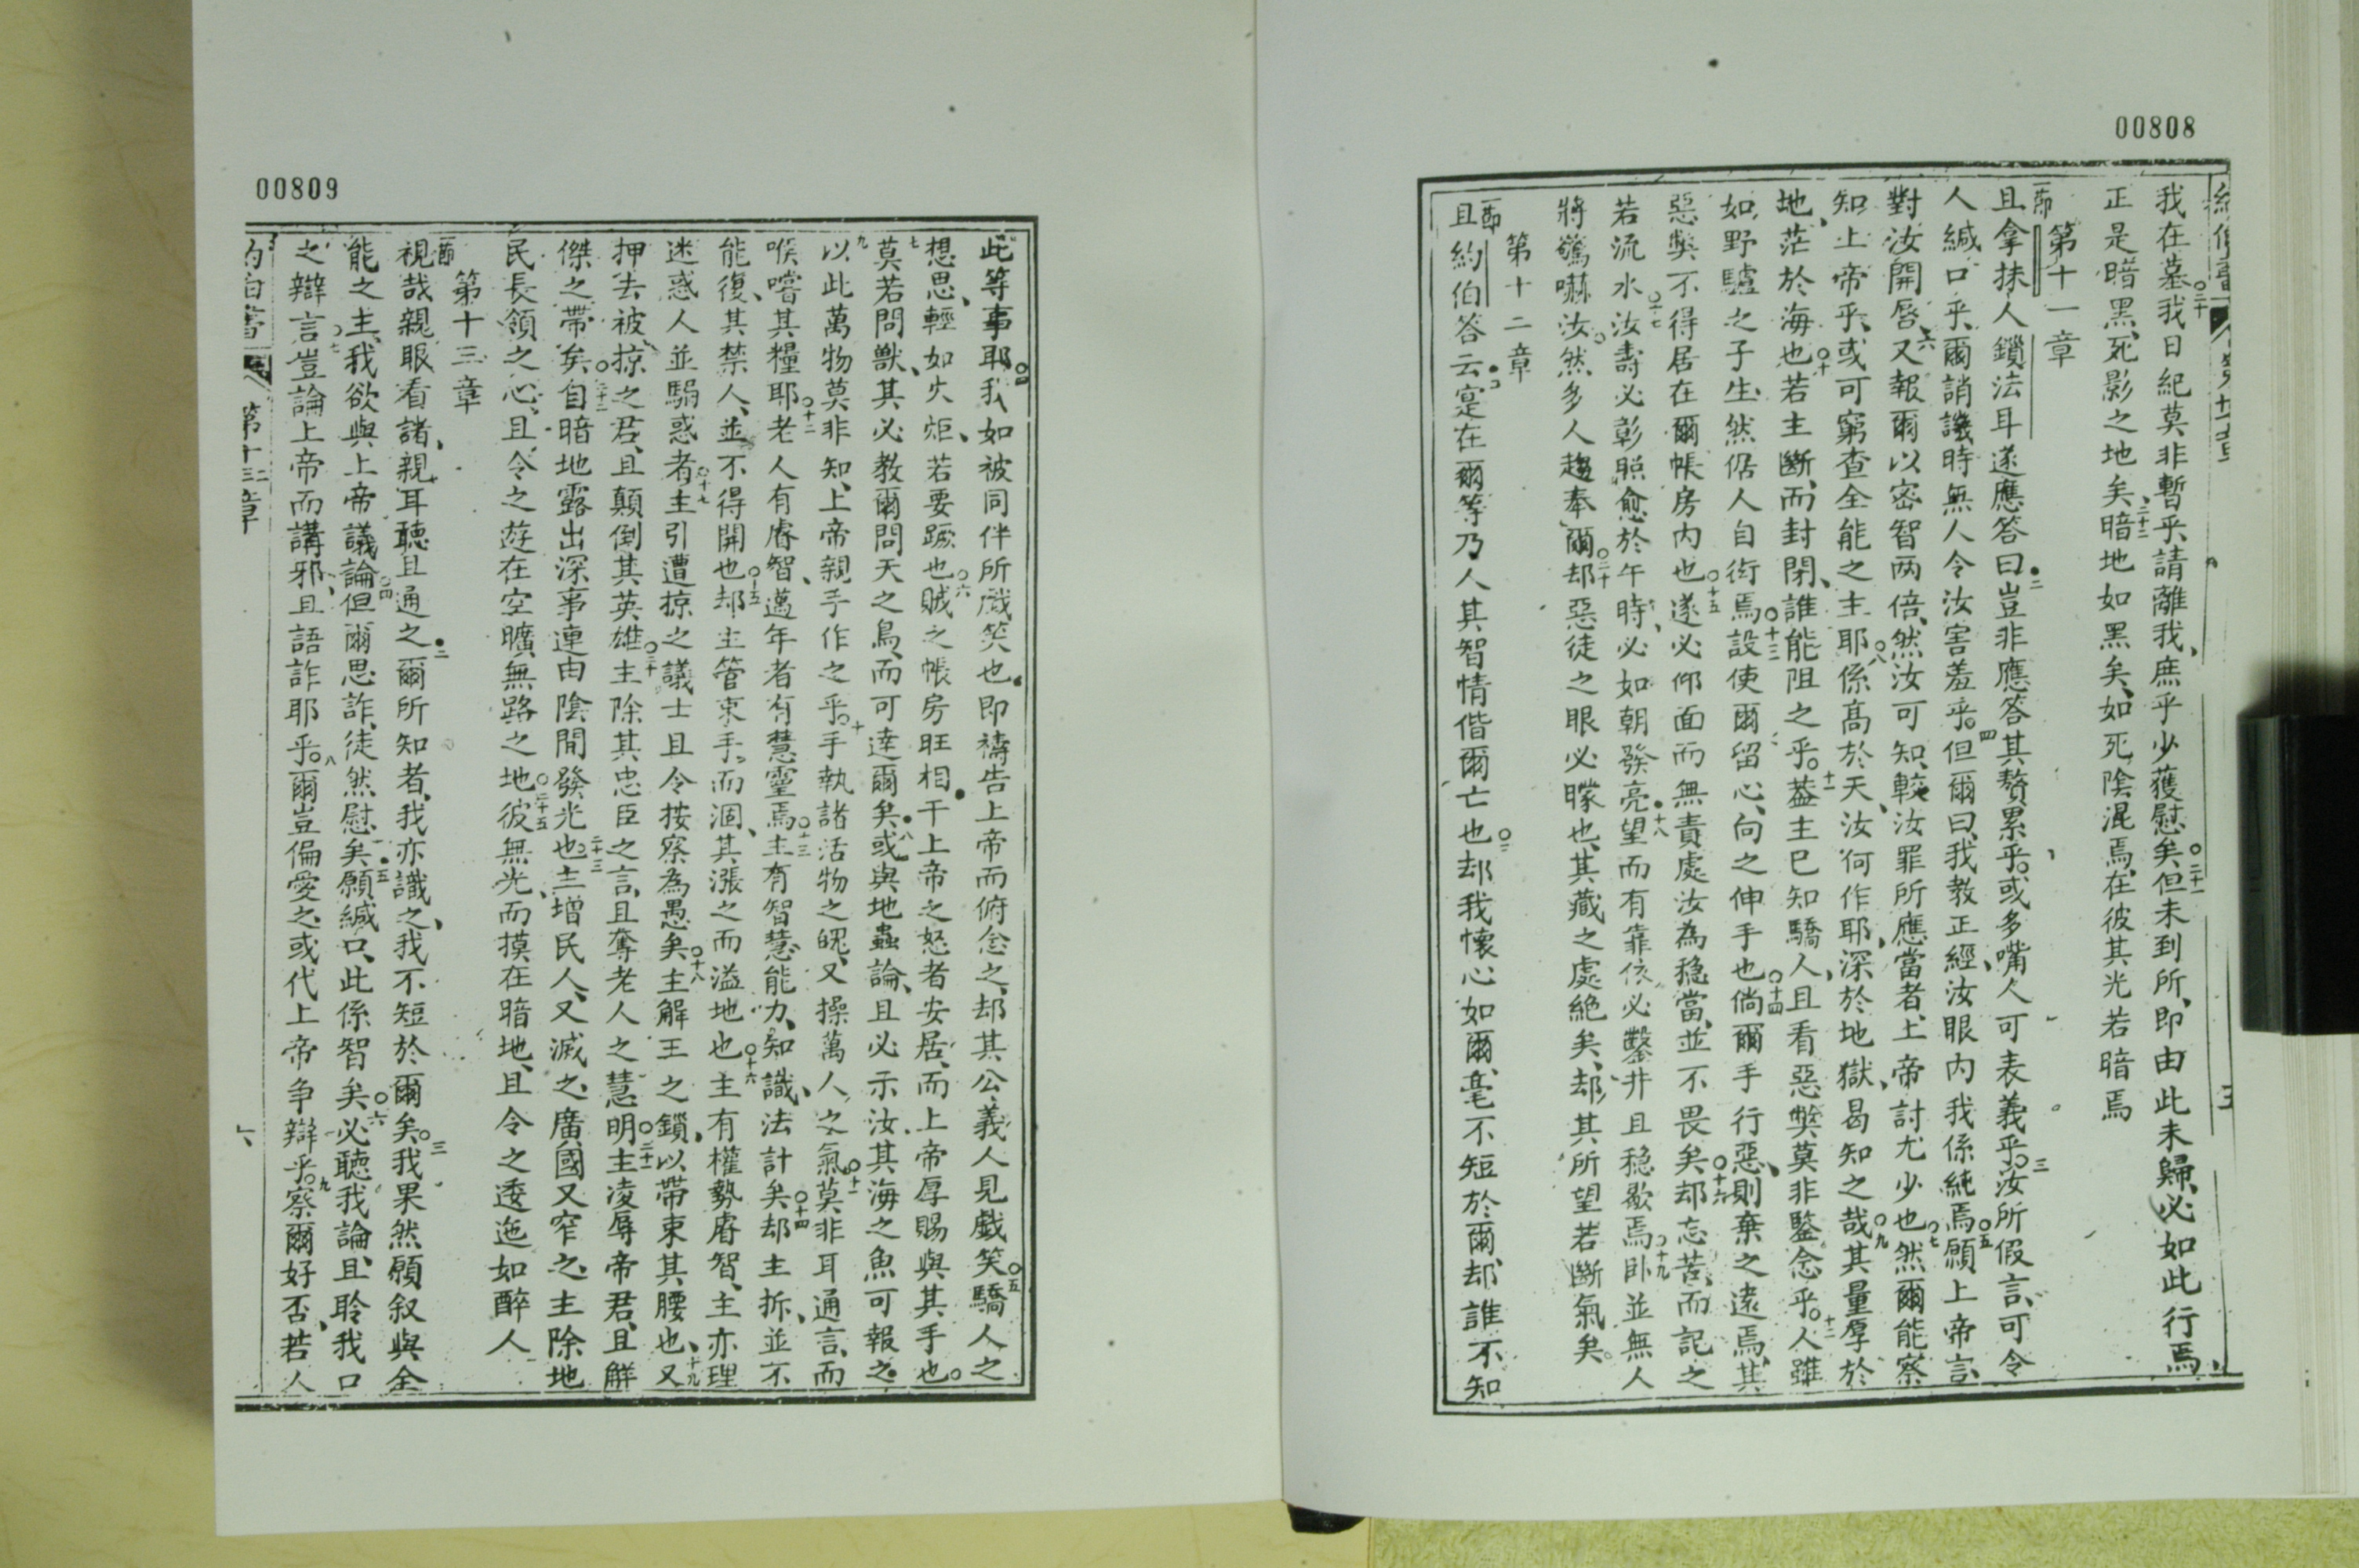 00808
我在墓二十我日紀莫非暫乎請離我庶乎少獲慰矣二十一但未到所即由此未歸必如此行焉
正是暗黑死影之地矣二十二暗地如黑矣如死陰混焉在彼其光若暗焉
第十一章
一節且拿抹人鎖法耳遂應答曰二豈非應答其贅累乎或多嘴人可表義乎三汝所假言可令
人緘口乎爾誚譏時無人令汝害羞乎四但爾曰我教正經汝眼內我係純焉五願上帝言
對汝開唇六又報爾以密智两倍然汝可知較汝罪所應當者上帝討尤少也七然爾能察
知上帝乎或可窮查全能之主耶八係高於天汝何作耶深於地獄曷知之哉九其量厚於
地茫於海也十若主斷而封閉誰能阻之乎十一蓋主已知驕人且看惡弊莫非鑒念乎十二人雖
如野驢之子生然倨人自衒焉十三設使爾留心向之伸手也十四倘爾手行惡則棄之遠焉其
惡弊不得居在爾帳房內也十五遂必仰面而無責處汝為穩當並不畏矣十六却忘苦而記之
若流水十七汝壽必彰熙愈於午時必如朝發亮十八望而有靠依必鑿井且穩歇焉十九卧並無人
將驚嚇汝然多人趨奉爾二十却惡徒之眼必矇也其藏之處絕矣却其所望若斷氣矣
第十二章
一節且約伯答云二寔在爾等乃人其智情偕爾亡也三却我懷心如爾毫不短於爾却誰不知
00809
此等事耶四我如被同伴所戲笑也即禱告上帝而俯念之却其公義人見戲笑五驕人之
想思輕如火炬若要蹶也六賊之帳房旺相干上帝之怒者安居而上帝厚賜與其手也
七莫若問獸其必教爾問天之鳥而可達爾矣八或與地蟲論且必示汝其海之魚可報之
九以此萬物莫非知上帝親手作之乎十手執諸活物之魄又操萬人之氣十一莫非耳通言而
喉嚐其糧耶十二老人有睿智邁年者有慧靈焉十三主有智慧能力知識法計矣十四却主拆並不
能復其禁人並不得開也十五却主管束手而涸其漲之而溢地也十六主有權勢睿智主亦理
迷惑人並騙惑者十七主引遭掠之議士且令按察為愚矣十八主解王之鎖以帶束其腰也十九又
押去被掠之君且顛倒其英雄二十主除其忠臣之言且奪老人之慧明二十一主凌辱帝君且解
傑之帶矣二十二自暗地露出深事連由陰間發光也二十三主增民人又滅之廣國又窄之主除地
民長領之心且令之遊在空曠無路之地二十五彼無光而摸在暗地且令之逶迤如醉人
第十三章
一節視哉親眼看諸親耳聽且通之二爾所知者我亦識之我不短於爾矣三我果然願叙與全
能之主我欲與上帝議論四但爾思詐徒然慰矣五願緘口此係智矣六必聽我論且聆我口
之辯言七豈論上帝而講邪且語詐耶乎八爾豈偏愛之或代上帝争辯乎九察爾好否若人
第十三章
六